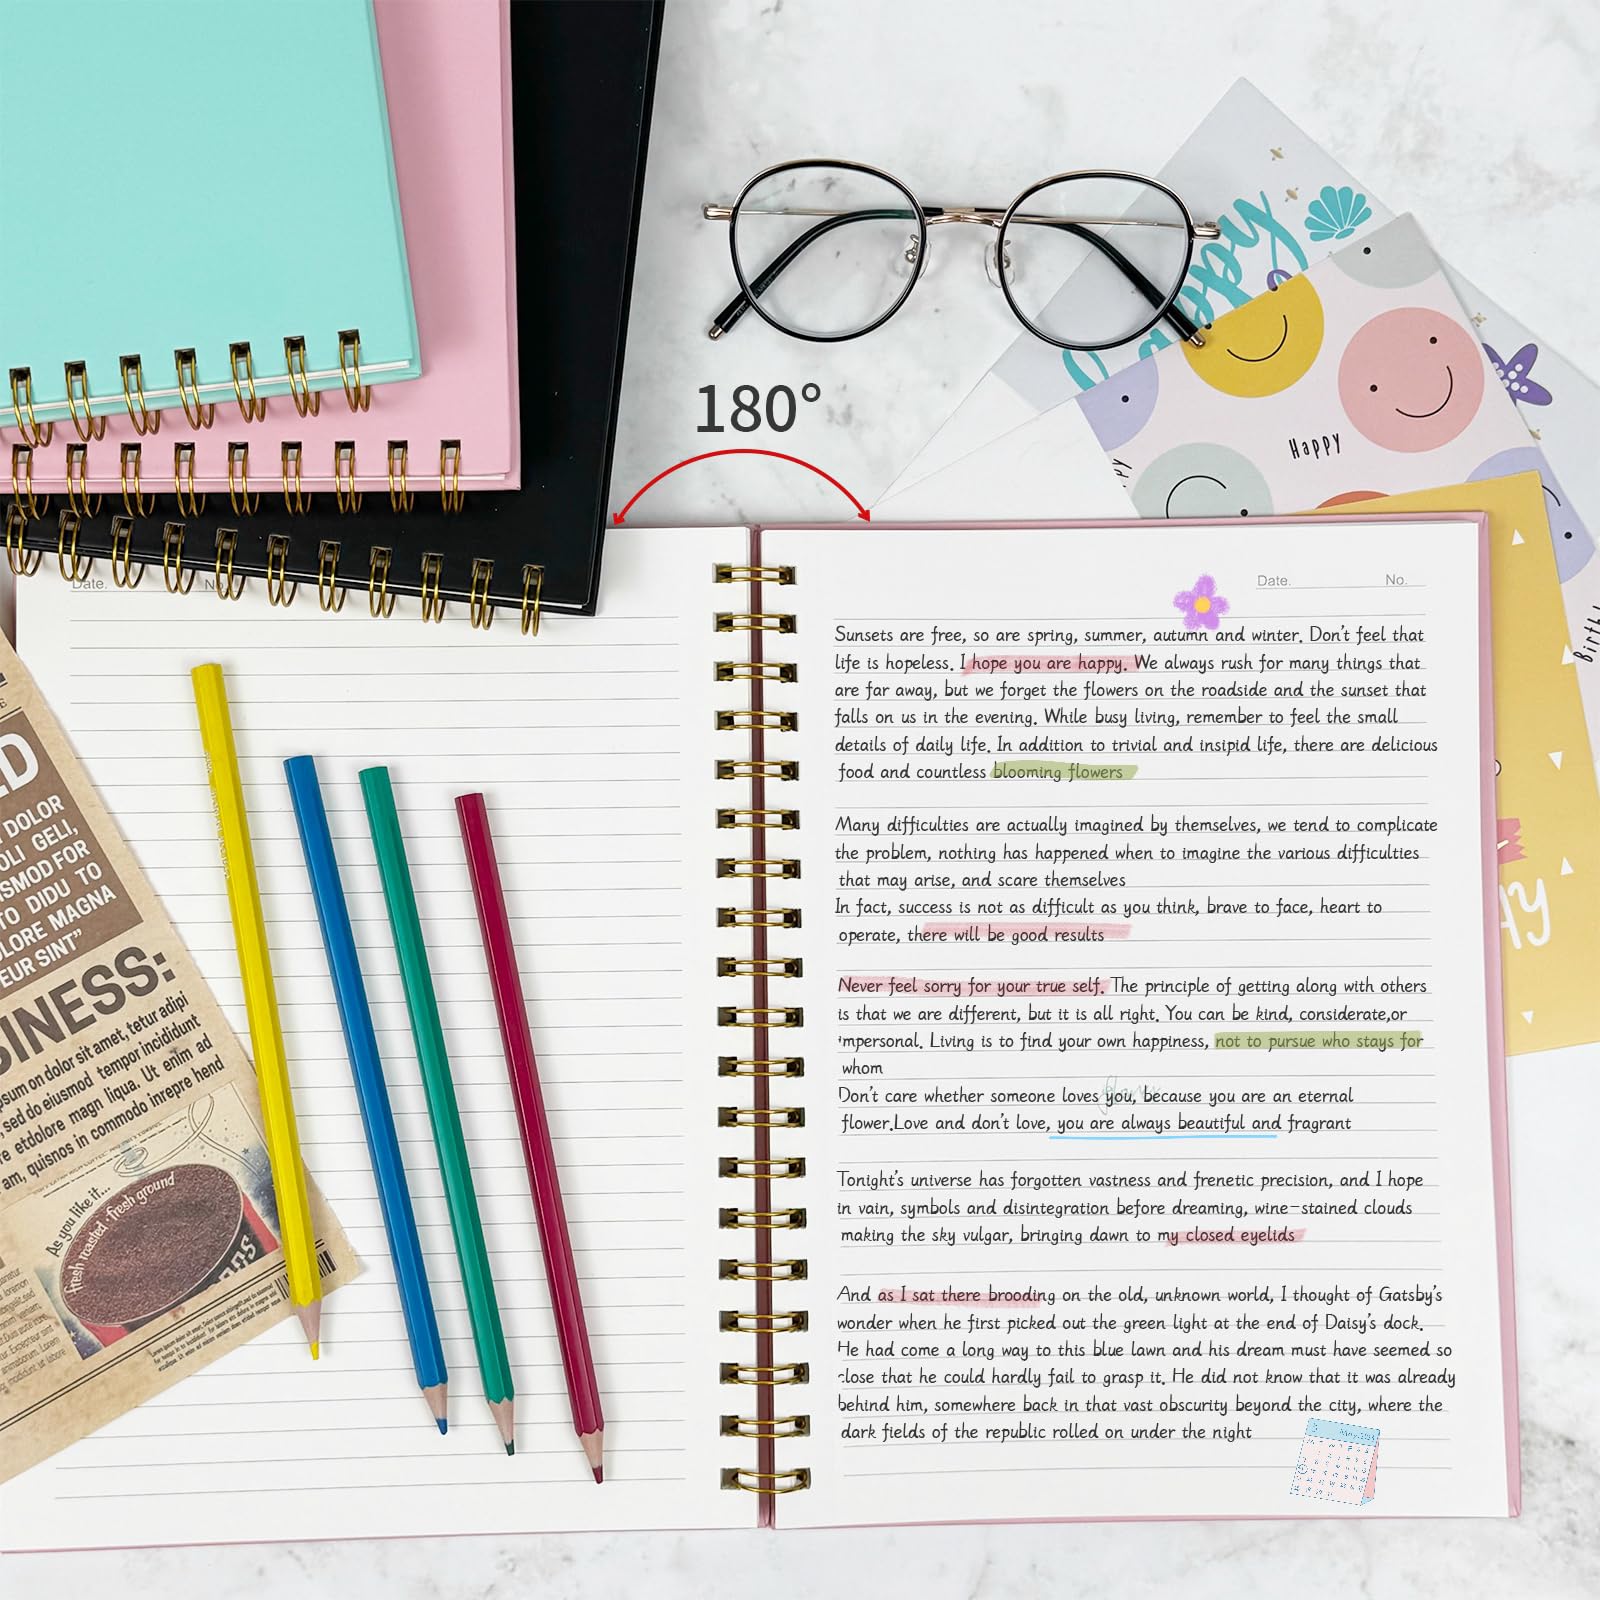 180°
Happy
Birth
AY
Date. No.
Date. No.
Sunsets are free, so are spring, summer, autumn and winter. Don't feel that
life is hopeless. I hope you are happy. We always rush for many things that
are far away, but we forget the flowers on the roadside and the sunset that
falls on us in the evening. While busy living, remember to feel the small
details of daily life. In addition to trivial and insipid life, there are delicious
food and countless blooming flowers
Many difficulties are actually imagined by themselves, we tend to complicate
the problem, nothing has happened when to imagine the various difficulties
that may arise, and scare themselves
In fact, success is not as difficult as you think, brave to face, heart to
operate, there will be good results
Never feel sorry for your true self. The principle of getting along with others
is that we are different, but it is all right. You can be kind, considerate,or
impersonal. Living is to find your own happiness, not to pursue who stays for
whom
Don't care whether someone loves you, because you are an eternal
flower.Love and don't love, you are always beautiful and fragrant
Tonight's universe has forgotten vastness and frenetic precision, and I hope
in vain, symbols and disintegration before dreaming, wine-stained clouds
making the sky vulgar, bringing dawn to my closed eyelids
And as I sat there brooding on the old, unknown world, I thought of Gatsby's
wonder when he first picked out the green light at the end of Daisy's dock.
He had come a long way to this blue lawn and his dream must have seemed so
close that he could hardly fail to grasp it. He did not know that it was already
behind him, somewhere back in that vast obscurity beyond the city, where the
dark fields of the republic rolled on under the night
ED
DOLOR
OLI GELI,
SMOD FOR
TO DIDU TO
OLORE MAGNA
EUR SINT"
SINESS:
psum on dolor sit amet, tetur adipi
, sed do eiusmod tempor incididunt
re etdolore magn liqua. Ut enim ad
am, quisnos in commodo inrepre hend
As you like it...
fresh roasted, fresh ground